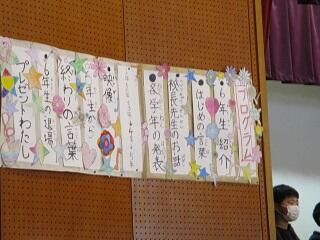 プログラム
6年生紹介
はじめの言葉
校長先生のお話
各学年の発表
映像
6年生から
終わりの言葉
6年生の退場
プレゼントわたし